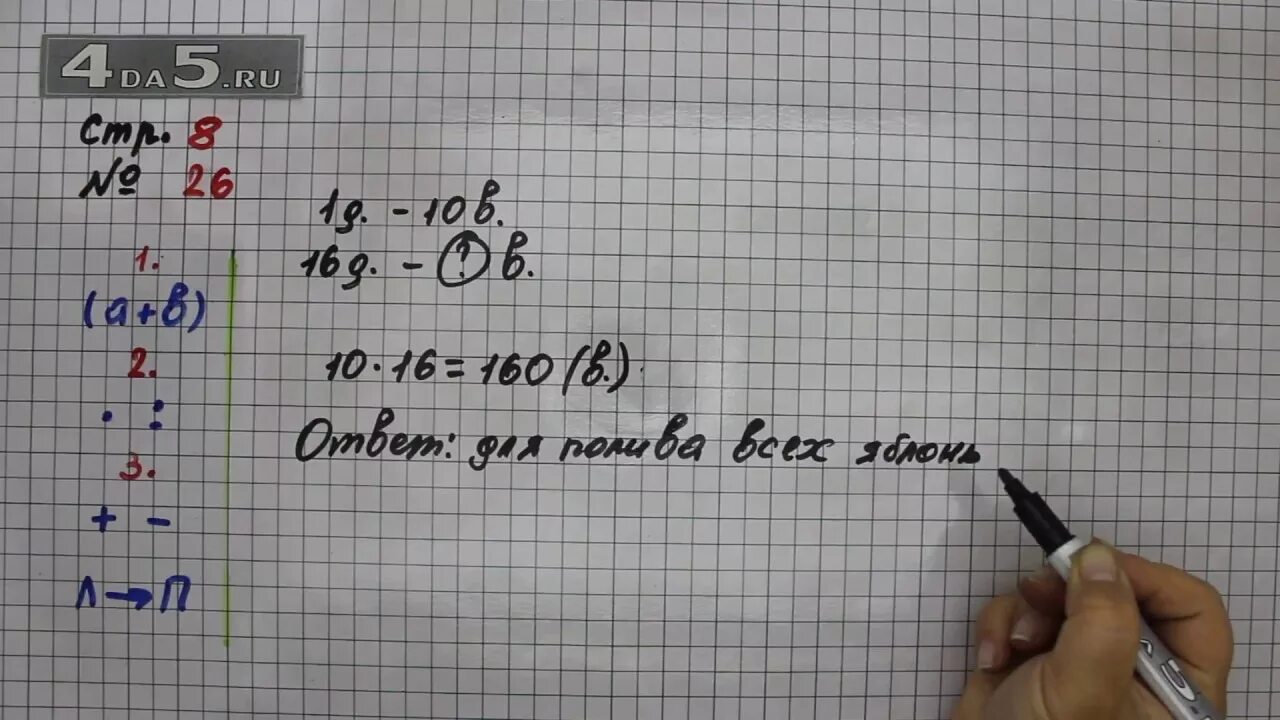 4DA5.RU
Стр. 8
№ 26
1.
(а+в)
2.
· :
3.
+ −
Л→П
1д. - 10в.
16д. - ? в.
10·16=160 (в.)
Ответ: для полива всех яблонь